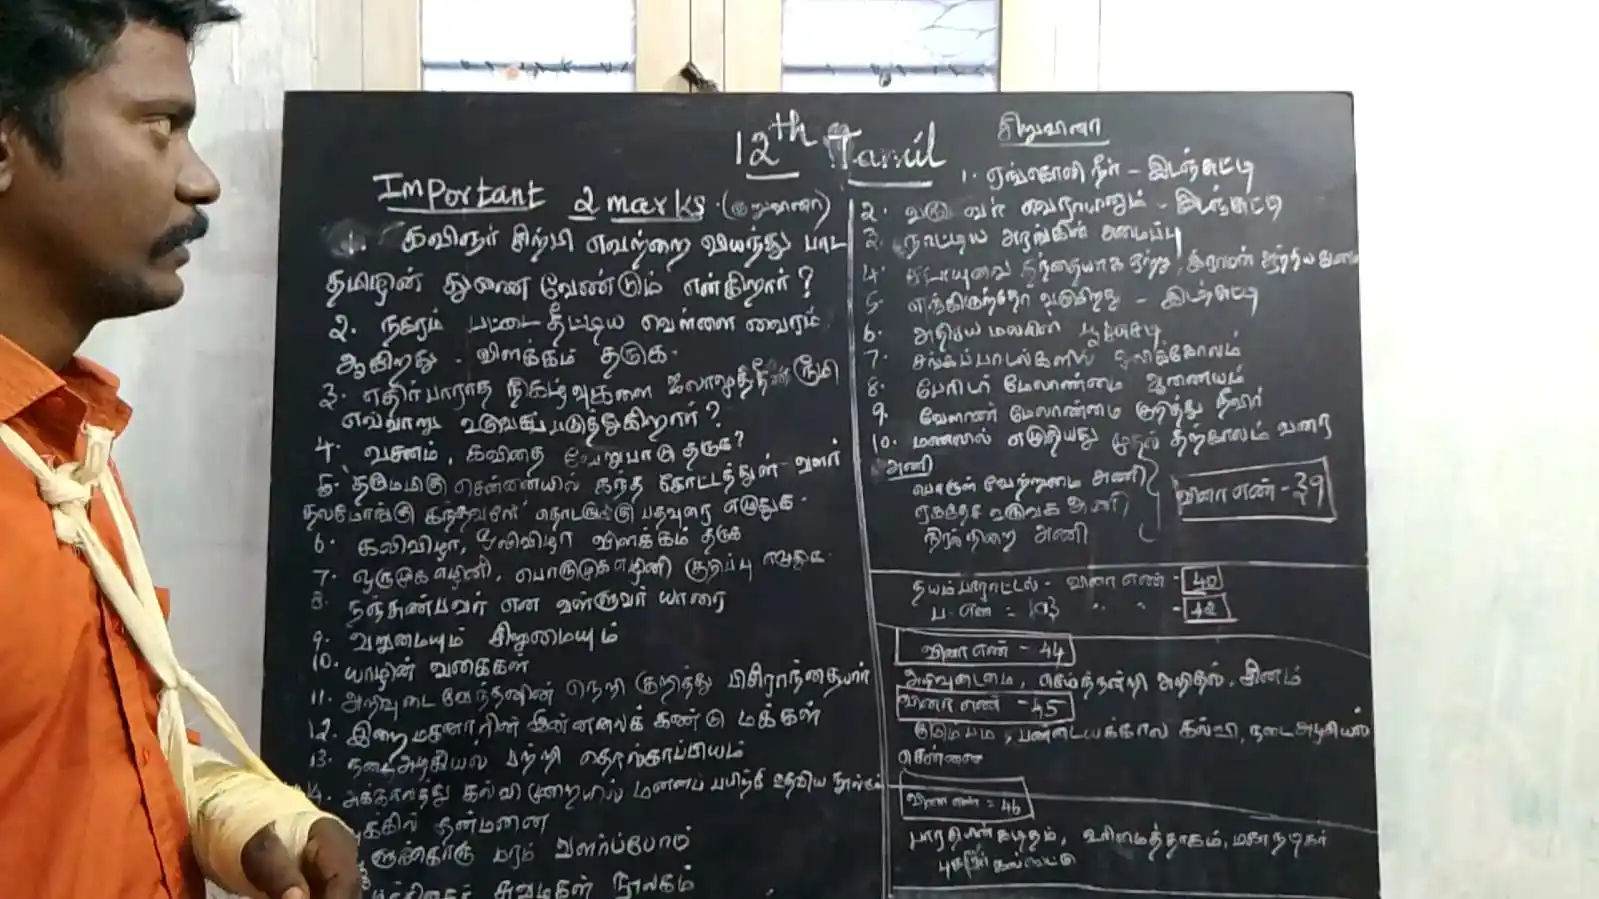 12th Tamil
Important 2 marks (குறுவினா)
1. கவிஞர் சிற்பி எவற்றை வியந்து பாட
தமிழின் துணை வேண்டும் என்கிறார்?
2. நகரம் பட்டை தீட்டிய வெள்ளை வைரம்
ஆகிறது - விளக்கம் தருக.
3. எதிர்பாராத நிகழ்வுகளை ஜலாலுத்தீன் ரூமி
எவ்வாறு உருவகப்படுத்துகிறார்?
4. வசனம், கவிதை வேறுபாடு தருக?
5. தருமமிகு சென்னையில் கந்த கோட்டத்துள் வளர்
தலமோங்கு கந்தவேளே தொடருக்கு பதவுரை எழுதுக.
6. கலிவிழா, ஒலிவிழா விளக்கம் தருக
7. ஒருமுக எழினி, பொருமுக எழினி குறிப்பு எழுதுக.
8. நஞ்சுண்பவர் என வள்ளுவர் யாரை
9. வறுமையும் சிறுமையும்
10. யாழின் வகைகள்
11. அறிவுடை வேந்தனின் நெறி குறித்து பிசிராந்தையார்
12. இறைமகனாரின் இன்னலைக் கண்டு மக்கள்
13. நடை அழகியல் பற்றி தொல்காப்பியம்
14. அக்காலத்து கல்வி முறையில் மனனப் பயிற்சி உதவிய நூல்கள்
முக்கில் தன்மனை
மரம் வளர்ப்போம்
சுவடிகள் நூலகம்
சிறுவினா
1. ஏங்கொலி நீர் - இடஞ்சுட்டி
2. வருவர் வரினும் - இடஞ்சுட்டி
3. நாட்டிய அரங்கின் அமைப்பு
4.
5. எங்கிருந்தோ வருகிறது - இடஞ்சுட்டி
6. அதிசய மலரின் பூச்செடி
7. சங்கப்பாடல்களில் ஒலிக்கோலம்
8. பேரிடர் மேலாண்மை ஆணையம்
9. வேளாண் மேலாண்மை குறித்து நீவிர்
10. மணலில் எழுதியது முதல் தற்காலம் வரை
அணி
பொருள் வேற்றுமை அணி
ஏகதேச உருவக அணி
நிரல்நிறை அணி
வினா எண் - 39
நயம் பாராட்டல் - வினா எண் - 40
ப. எண் = 103 " " - 42
வினா எண் - 44
அறிவுடைமை, செய்ந்நன்றி அறிதல், சினம்
வினா எண் - 45
பண்டையக்கால கல்வி, நடை அழகியல்
சென்னை
வினா எண் = 46
பாரதியின் கடிதம், உரிமைத்தாகம், மனநடிகர்